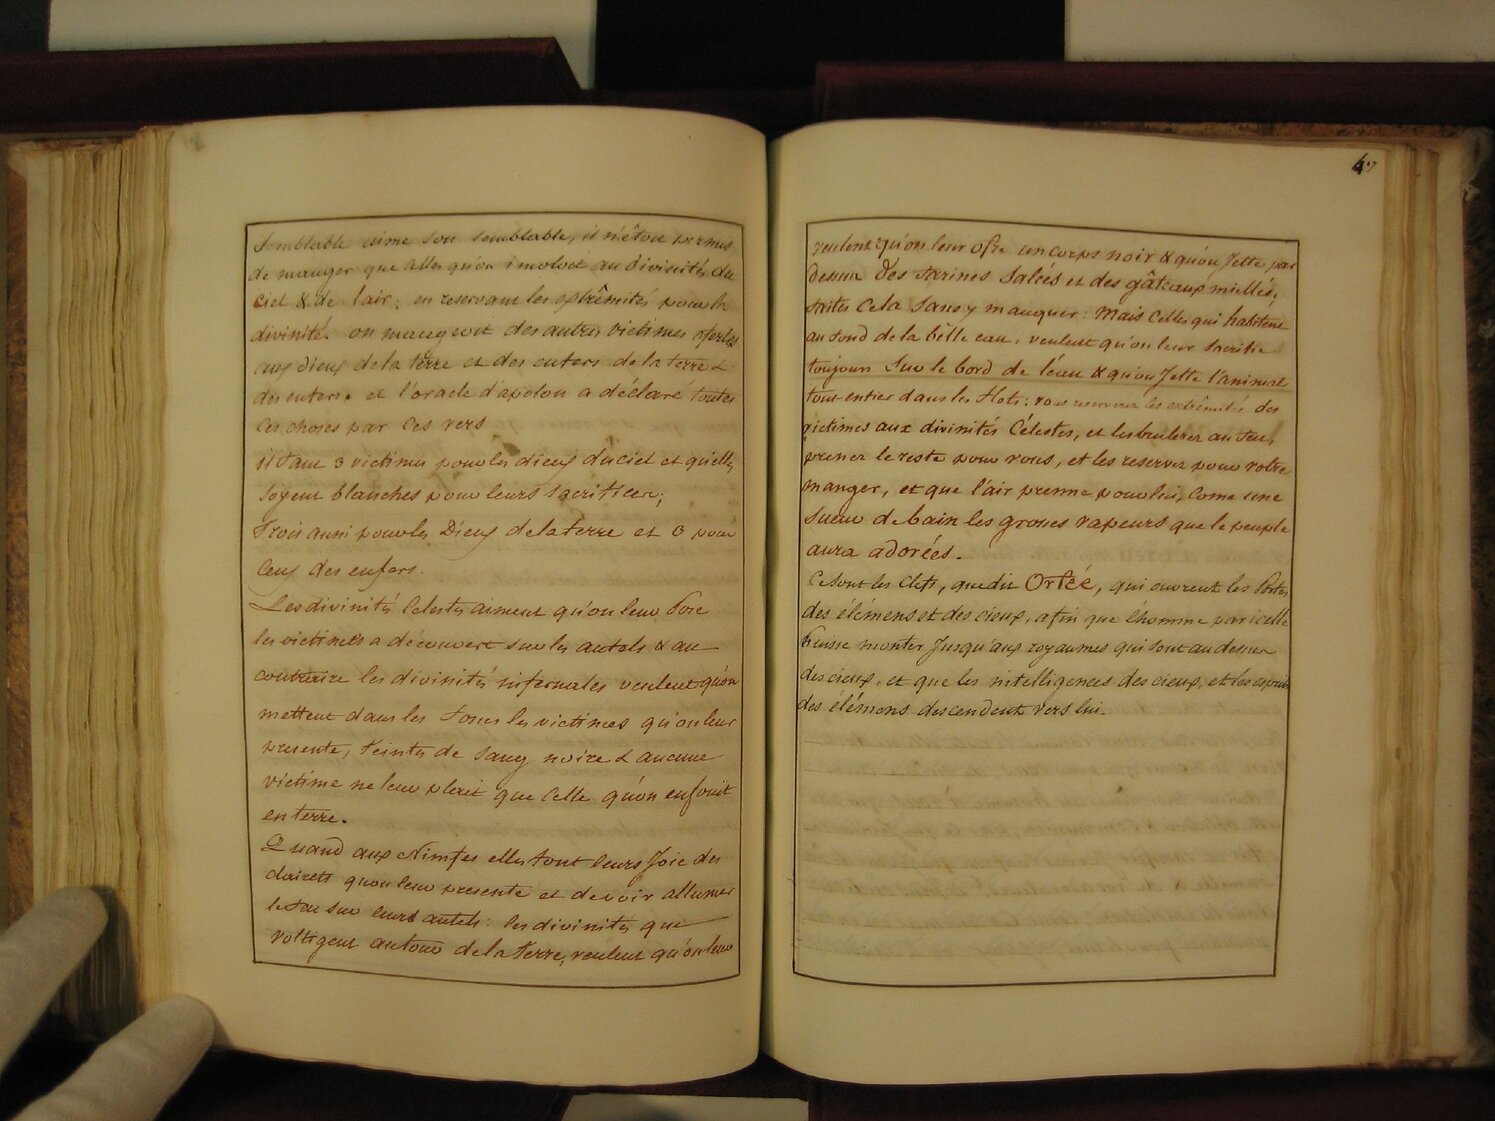 Semblable aime son semblable, il n'étoit permis
de manger que celles qu'on imoloit au divinités du
ciel & de l'air; en reservant les extrêmités pour la
divinité. on mangeoit des autres victimes ofertes
aux dieux de la terre et des enfers de la terre &
des enfers. et l'oracle d'apolon a déclaré toutes
ces choses par ces vers
il faut 3 victimes pour les dieux du ciel et qu'elles
soyent blanches pour leurs sacrifices;
Trois aussi pour les Dieux de la terre et 3 pour
ceux des enfers.
Les divinités Celestes aiment qu'on leur
les victimes a découvert sur les autels & au
contraire les divinités infernales veulent qu'on
mettent dans les fosses les victimes qu'on leur
presente, teintes de sang noire & aucune
victime ne leur plait que celle qu'on enfouit
en terre.
Quand aux Nimfes elles font leurs Joie des
clairets qu'on leur presente et de voir allumer
le feu sur leurs autels: les divinités qui
voltigent autour de la terre, veulent qu'on leur
47
veulent qu'on leur ofre un corps noir & qu'on Jette par
dessus des farines Salées et des gâteaux miellés,
faites cela sans y manquer: Mais Celles qui habitent
au fond de la bêlle eau, veulent qu'on leur sacrifie
toujours Sur le bord de l'éau & qu'on Jette l'animal
tout entier dans les flots: vous reserverez les extrêmités des
victimes aux divinités Célestes, et les brulerez au feu,
prenez le reste pour vous, et les reservez pour votre
manger, et que l'air prenne pour lui, Come une
sueur de bain les grosses vapeurs que le peuple
aura adorées.
Ce sont les Clefs, que dit Orféé, qui ouvrent les Portes
des élémens et des cieux, afin que l'homme par icelle
Puisse monter Jusqu'aux royaumes qui sont au dessus
des cieux, et que les intelligences des cieux, et les esprits
des élémens descendent vers lui.